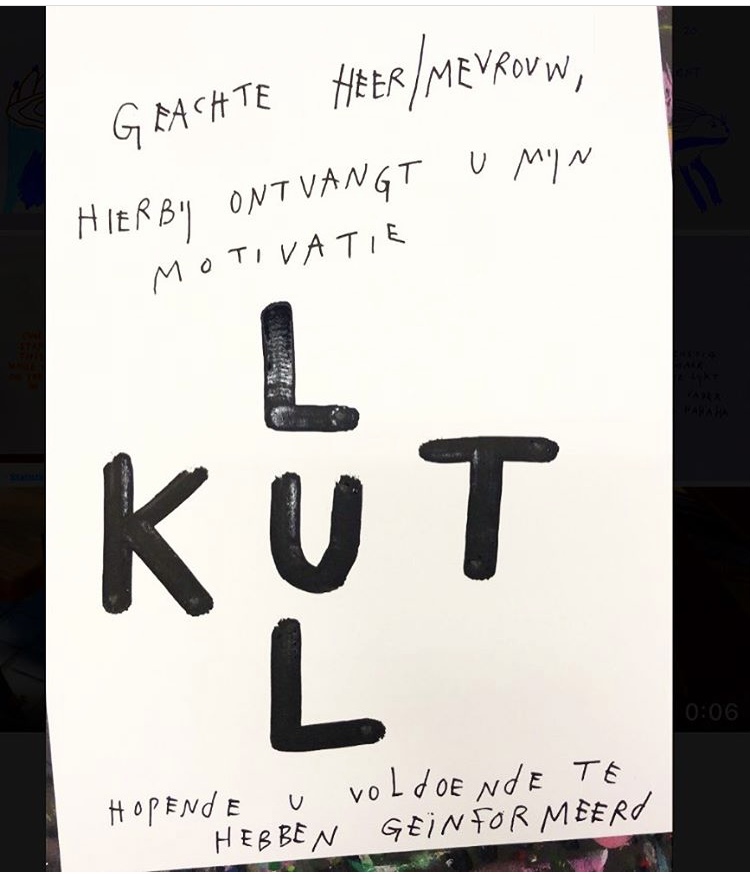 GEACHTE HEER/MEVROUW,
HIERBIJ ONTVANGT U MIJN
MOTIVATIE
L
KUT
L
HOPENDE U VOLDOENDE TE
HEBBEN GEïNFORMEERD
0:06